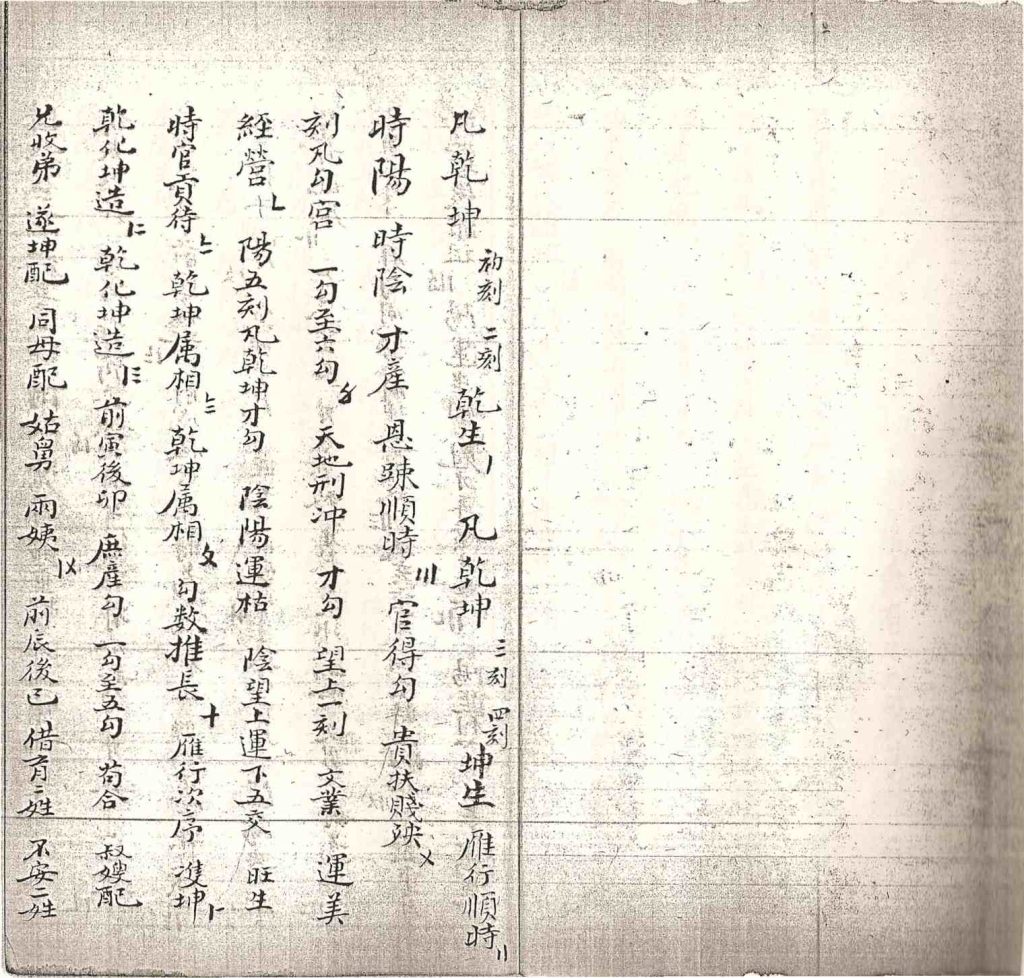 凡乾坤 初刻 二刻 乾生〡 凡乾坤 三刻 四刻 坤生 雁行順時〢
時陽 時陰 才產 恩疎順時〣 官得勾 貴扶賤殃〤
刻凡勾宮 一勾至六勾〥 天地刑冲 才勾 望上一刻 文業 運美
經營〸 陽五刻凡乾坤才勾 陰陽運枯 陰望上運下五交 旺生
時官貢待 乾坤属相 乾坤属相 勾数推長〸 雁行次序 雙坤
乾化坤造 乾化坤造 前寅後卯 庶產勾 一勾至五勾 苟合 叔嫂配
兄收弟 遂坤配 同母配 姑舅 兩姨〤 前辰後巳 借育二姓 不安二姓